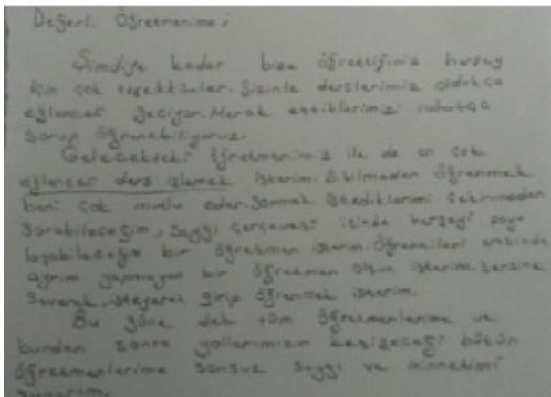 Değerli Öğretmenime;
Şimdiye kadar bize öğrettiğiniz herşey
için çok teşekkürler. Sizinle derslerimiz oldukça
eğlenceli geçiyor. Merak ettiklerimizi rahatça
sorup öğrenebiliyoruz.
Gelecekteki öğretmenimiz ile de en çok
eğlenceli ders işlemek isterim. Sıkılmadan öğrenmek
beni çok mutlu eder. Sormak istediklerimi çekinmeden
sorabileceğim, saygı çerçevesi içinde herşeyi paya
laşabileceğim bir öğretmen isterim. Öğrencileri arasında
ayrım yapmayan bir öğretmen olsun isterim. Dersine
severek, isteyerek girip öğrenmek isterim.
Bu güne dek tüm öğretmenlerime ve
bundan sonra yollarımızın kesişeceği bütün
öğretmenlerime sonsuz saygı ve minnetimi
sunarım.